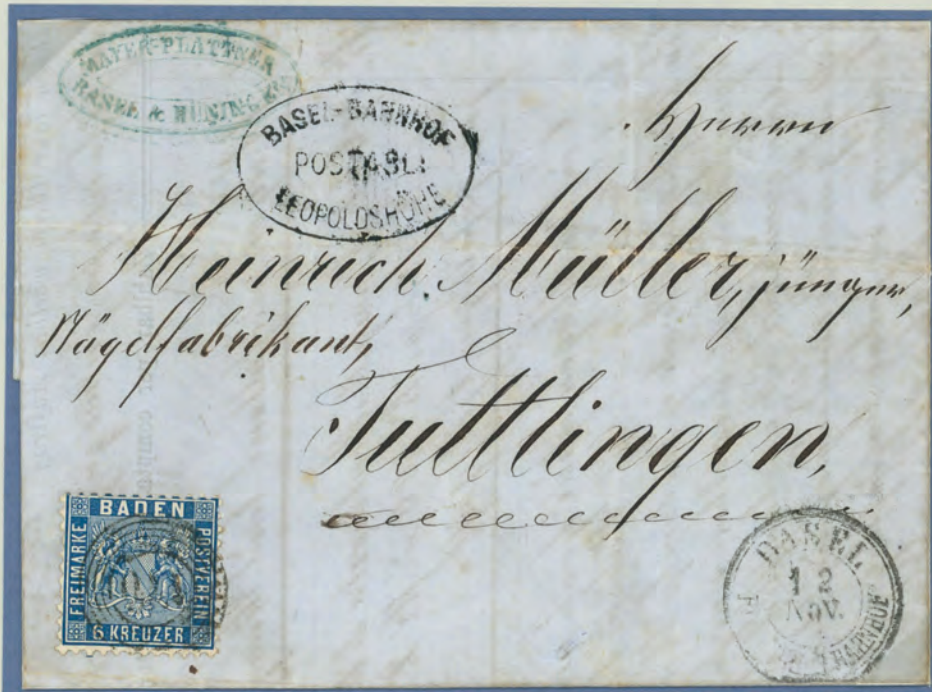 MAYER-PLATTNER
BASEL & HÜNINGEN
BASEL-BAHNHOF
POSTABL:
LEOPOLDSHÖHE
Herrn
Heinrich Müller, jünger,
Nägelfabrikant,
Tuttlingen,
BADEN
FREIMARKE
POSTVEREIN
6 KREUZER
BASEL
12
NOV.
BAHNHOF